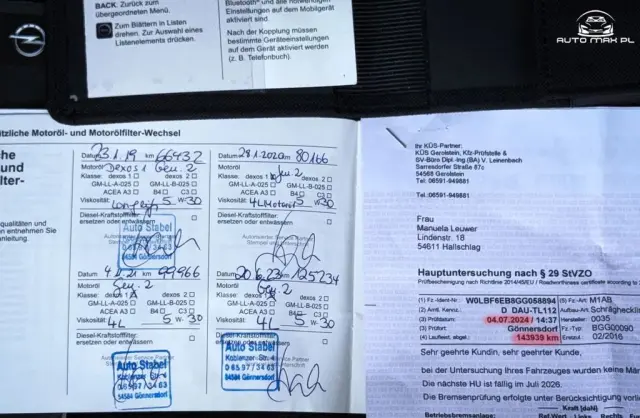 BACK. Zurück zum
übergeordneten Menü.
Zum Blättern in Listen
drehen. Zur Auswahl eines
Listenelements drücken.
Bluetooth® und alle notwendigen
Einstellungen auf dem Mobilgerät
aktiviert sind.
Nach der Kopplung müssen
bestimmte Geräteeinstellungen
auf dem Gerät aktiviert werden
(z. B. Telefonbuch).
AUTO MAX PL
Motoröl- und Motorölfilter-Wechsel
Datum 23.1.19 km 66432
Motoröl Dexos 1 Gen. 2
Klasse: dexos 1 dexos 2
GM-LL-A-025 GM-LL-B-025
ACEA A3 B4 C3
Viskosität: Longlife 5 W- 30
Diesel-Kraftstofffilter
ersetzen oder entwässern
Auto Stabel
54584 Gönnersdorf
Datum 28.1.2020 km 80166
Motoröl
Klasse: dexos 1 Gen. 2 dexos 2
GM-LL-A-025 GM-LL-B-025
ACEA A3 B4 C3
Viskosität: 4L Motoröl 5 W- 30
Diesel-Kraftstofffilter
ersetzen oder entwässern
Datum 4.1.21 km 99966
Motoröl Gen. 2
Klasse: dexos 2
GM-LL-A-025 GM-LL-B-025
ACEA A3 B4 C3
Viskosität: 4L 5 W- 30
Diesel-Kraftstofffilter
ersetzen oder entwässern
Auto Stabel
Koblenzer
0 65 97 / 34 63
54584 Gönnersdorf
Datum 20.6.23 km 125234
Motoröl Gen. 2
Klasse:
GM-LL-A-025 GM-LL-B-025
ACEA A3 B4 C3
Viskosität: 4L 5 W- 30
Diesel-Kraftstofffilter
ersetzen oder entwässern
Auto Stabel
Koblenzer Str. 4
0 65 97 / 34 63
54584 Gönnersdorf
Ihr KÜS-Partner:
KÜS Gerolstein, Kfz-Prüfstelle &
SV-Büro Dipl.-Ing (BA) V. Leinenbach
Sarresdorfer Straße 87c
54568 Gerolstein
Tel.:06591-949881
Tel.:06591-949881
Frau
Manuela Leuwer
Lindenstr. 18
54611 Hallschlag
Hauptuntersuchung nach § 29 StVZO
Prüfbescheinigung nach Richtlinie 2014/45/EU / Roadworthiness certificate according to
(1) Fz-Ident-Nr. W0LBF6EB8GG058894 (5) Fz.-Art: M1AB
(2) Amtl. Kennz.: D DAU-TL112 Aufbau-Art: Schräghecklim
(3) Prüfdatum: 04.07.2024 / 14:37 Hersteller: 0035
(3) Prüfort: Gönnersdorf Fz.-Typ: BGG00090
(4) Laufleist. abgel.: 143939 km Erstzul. 02/2016
Sehr geehrte Kundin, sehr geehrter Kunde,
bei der Untersuchung Ihres Fahrzeuges wurden keine Män
Die nächste HU ist fällig im Juli 2026.
Die Bremsenprüfung erfolgte unter Berücksichtigung vor
Kraft [daN]
Betriebsbremsanlage: